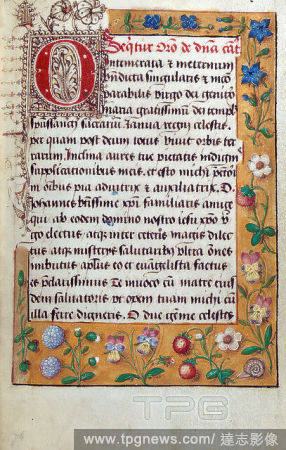 Intemerata & ineternum
bndicta singularis & incō
parabilis virgo dei genito
maria gratissimum dei templ
sacrariū Janua regni celestis
per quam post deum totus viuit orbis ter
rarum, Inclina aures tue pietatis indignis
supplicationibus meis, et esto michi
in oībus pia adiutrix & auxiliatrix. O
Johannes btissime xpi familiaris amice
qui ab eodem domino nostro iesu xpo v
go electus, atqz inter ceteros magis dilec
tus atqz misterijs salutaribus ultra omēs
imbutus aplus et euangelista factus
es Te inuoco cū matre eius
dem saluatoris ut opem tuam michi cū
illa ferre digneris. O due geme celestes
TPG
www.tpgnews.com/達志影像